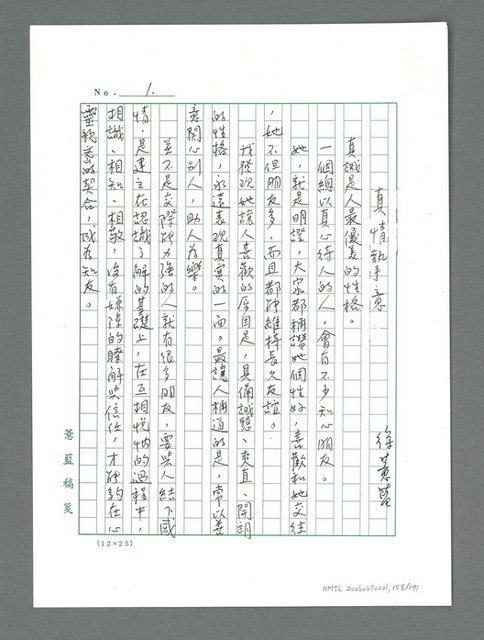 No. 1.
真情執意
徐蕙藍
真誠是人最優美的性格。
一個總以真心待人的人，會有不少知心朋友。
她，就是明證，大家都稱讚她個性好，喜歡和她交往
，她不但朋友多，而且都能維持長久友誼。
我發現她讓人喜歡的原因是，具備誠懇、爽直、開朗
的性格，永遠表現真實的一面。最讓人稱道的是，常以善
意關心別人，助人為樂。
並不是交際能力強的人就有很多朋友，要與人結下感
情，是建立在認識了解的基礎上，在互相悅納的過程中，
相識、相知、相敬，沒有嫌隙的瞭解與信任，才能夠在心
靈親密的契合，成為知友。
蕙藍稿箋
(12×25)
NMTL 20060370001, 158/191